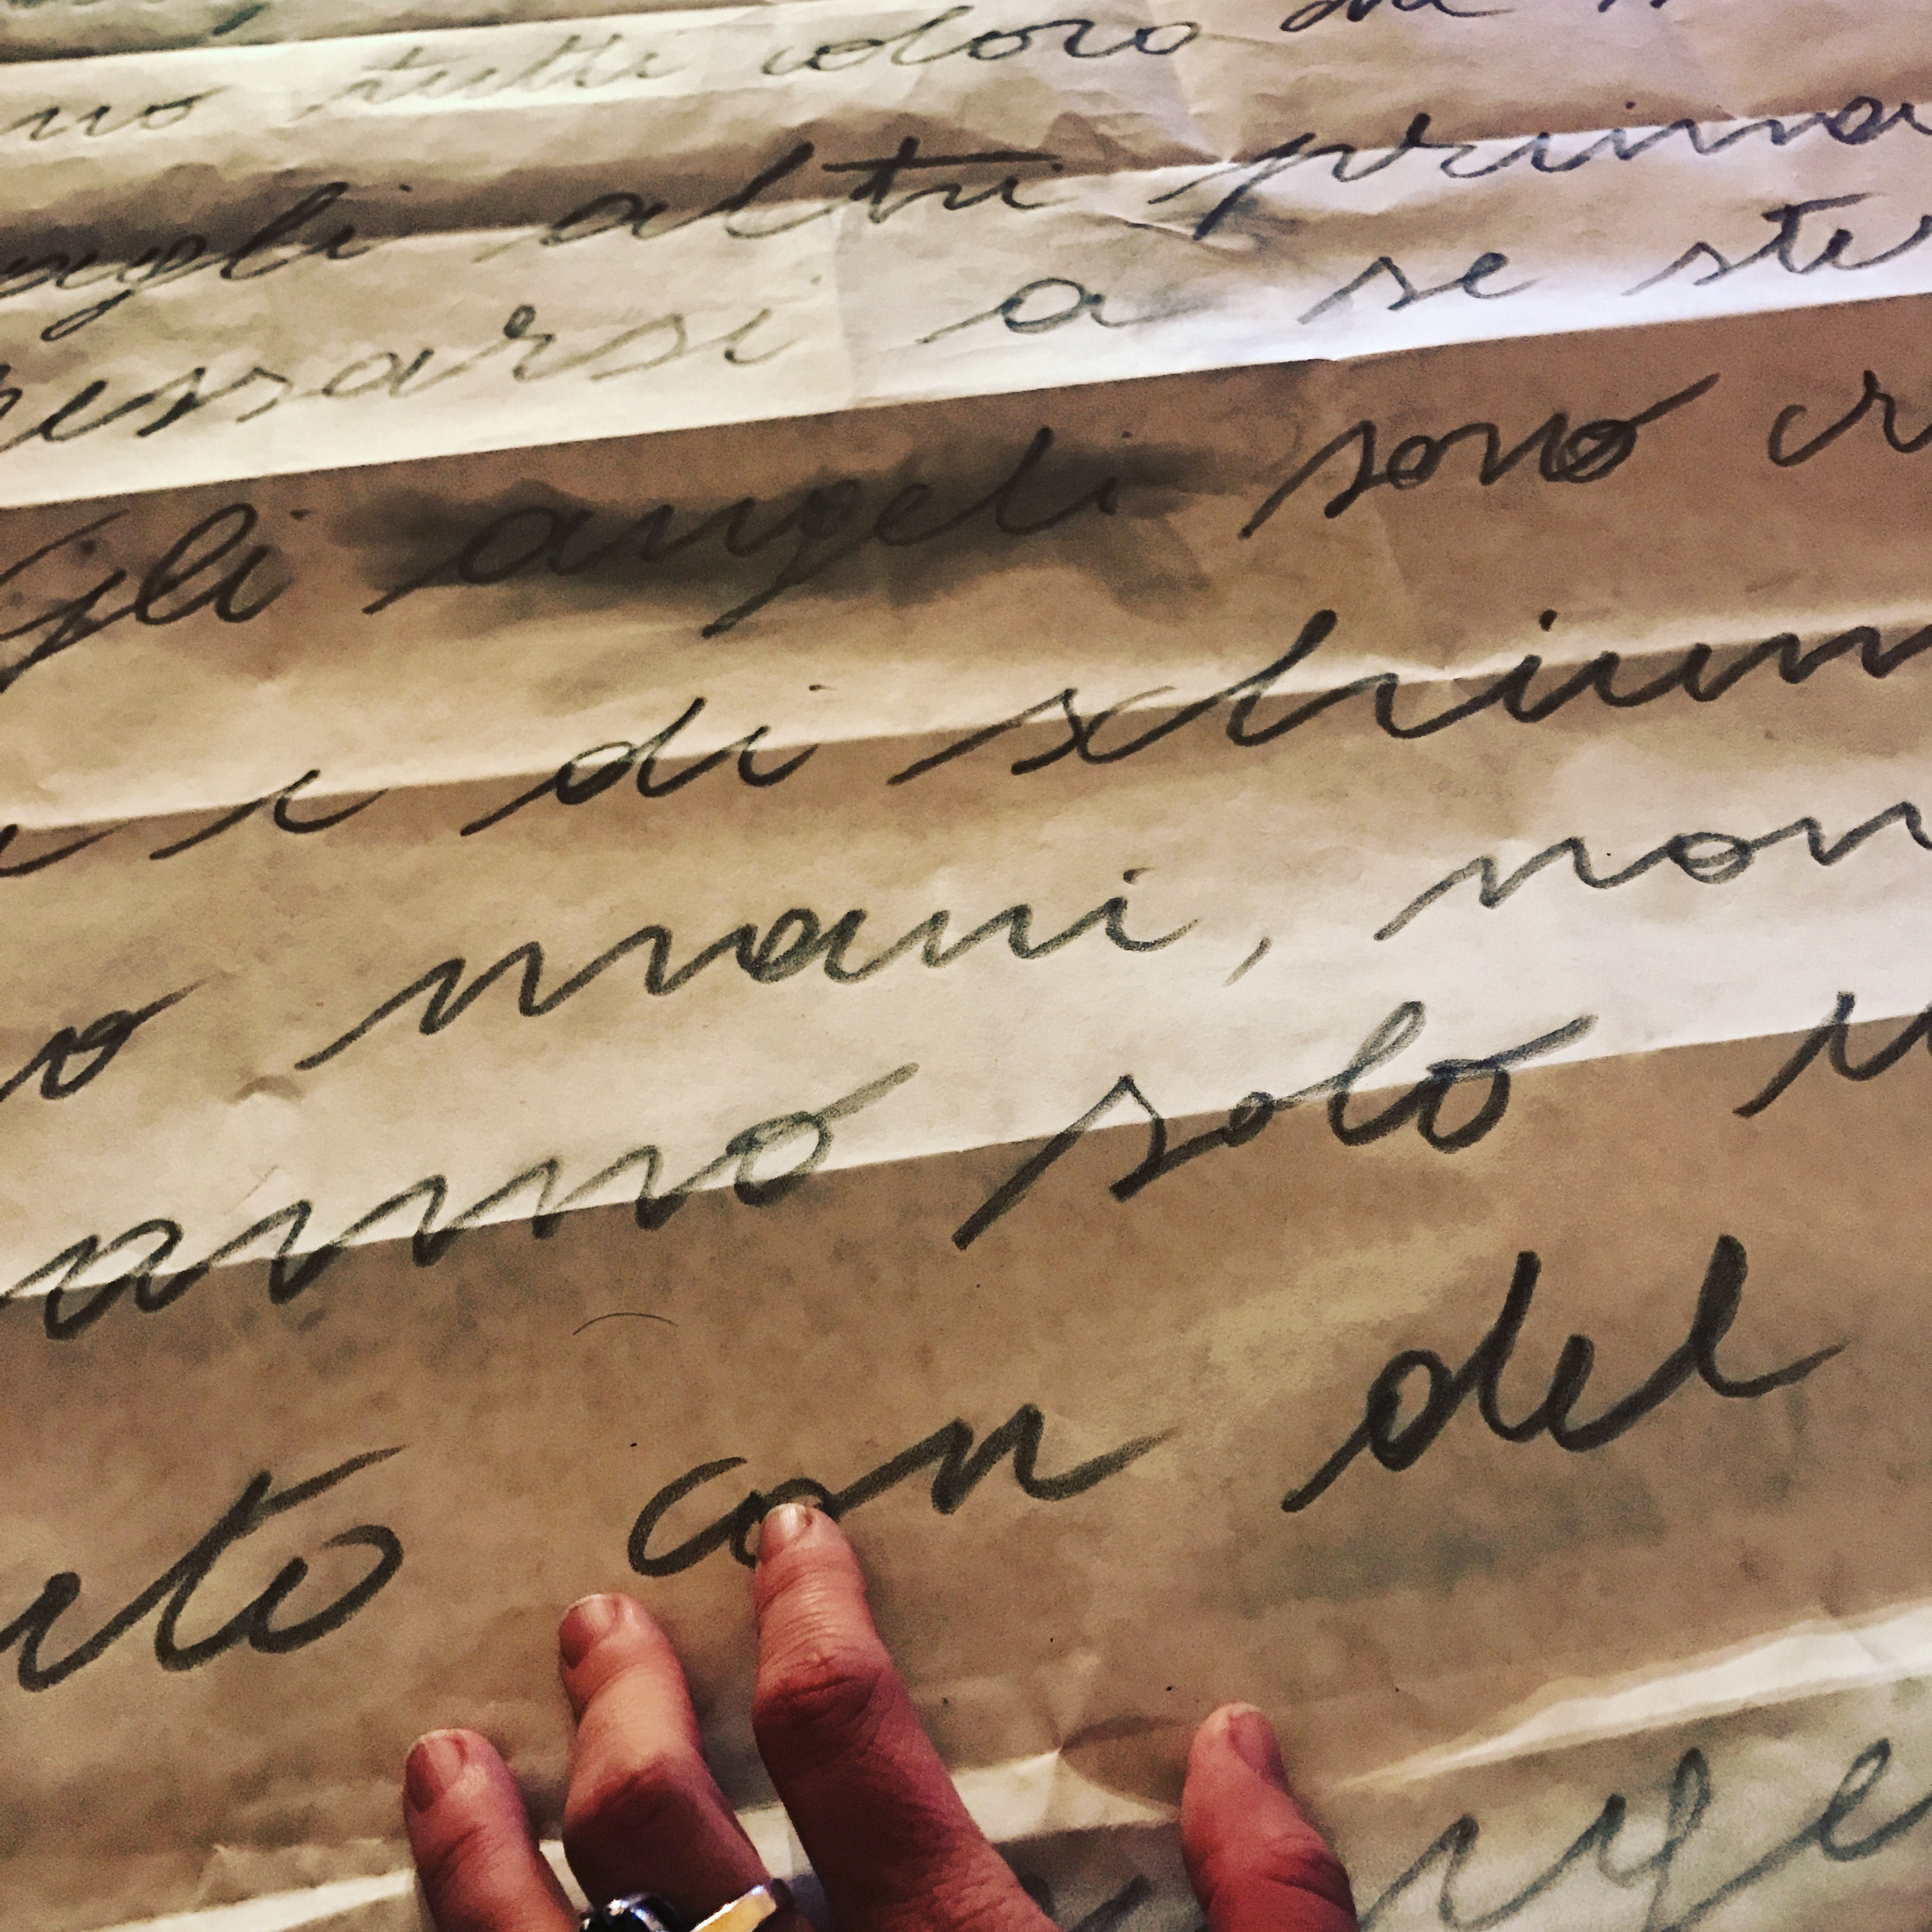 no tutti coloro che
agli altri prima
ressarsi a se ste
Gli angeli sono cr
e di schium
o mani, non
anno solo
ito con del